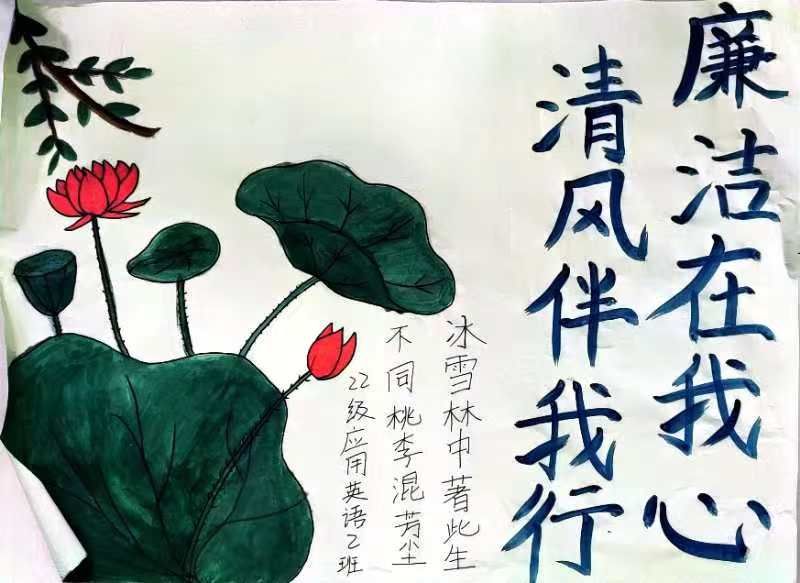 廉洁在我心
清风伴我行
冰雪林中著此生
不同桃李混芳尘
22级应用英语2班